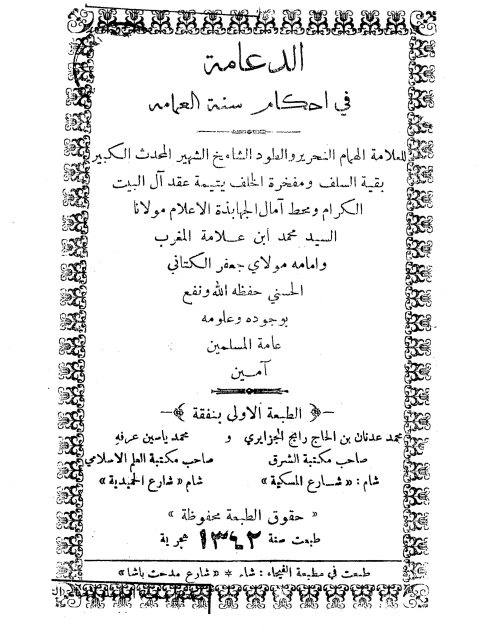 الدعامة
في احكام سنة العمامه
للعلامة الهمام النحرير والطود الشامخ الشهير المحدث الكبير
بقية السلف ومفخرة الخلف يتيمة عقد آل البيت
الكرام ومحط آمال الجهابذة الاعلام مولانا
السيد محمد ابن علامة المغرب
وامامه مولاي جعفر الكتاني
الحسني حفظه الله ونفع
بوجوده وعلومه
عامة المسلمين
آمين
الطبعة الاولى بنفقة
محمد عدنان بن الحاج رابح الجزايري و محمد ياسين عرفه
صاحب مكتبة الشرق صاحب مكتبة العلم الاسلامي
شام : « شارع المسكية » شام « شارع الحميدية »
« حقوق الطبعة محفوظة »
طبعت سنة ١٣٤٢ هجرية
طبعت في مطبعة الفيحاء : شام * « شارع مدحت باشا »